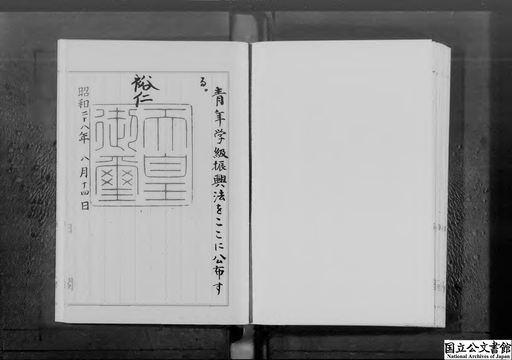 青年学級振興法をここに公布す
る。
裕仁
天皇
御璽
昭和二十八年八月十四日
国立公文書館
National Archives of Japan